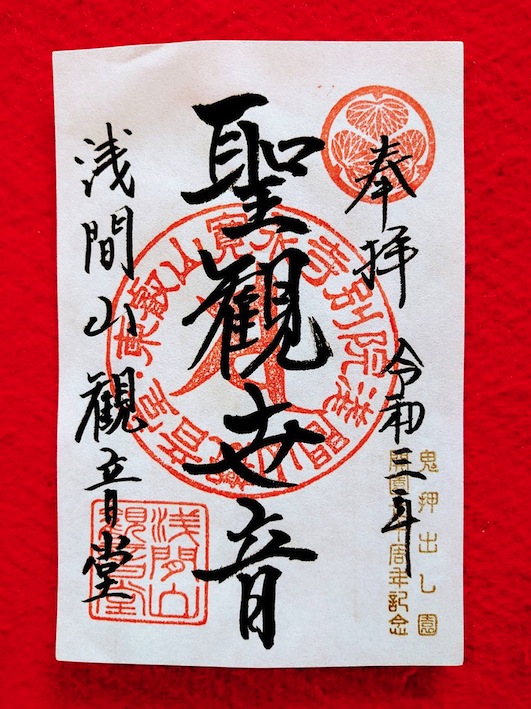 奉拝 令和三年
鬼押出し園
開園七十周年記念
聖觀世音
東叡山寛永寺別院浅間山観音堂
浅間山觀音堂
浅間山観音堂